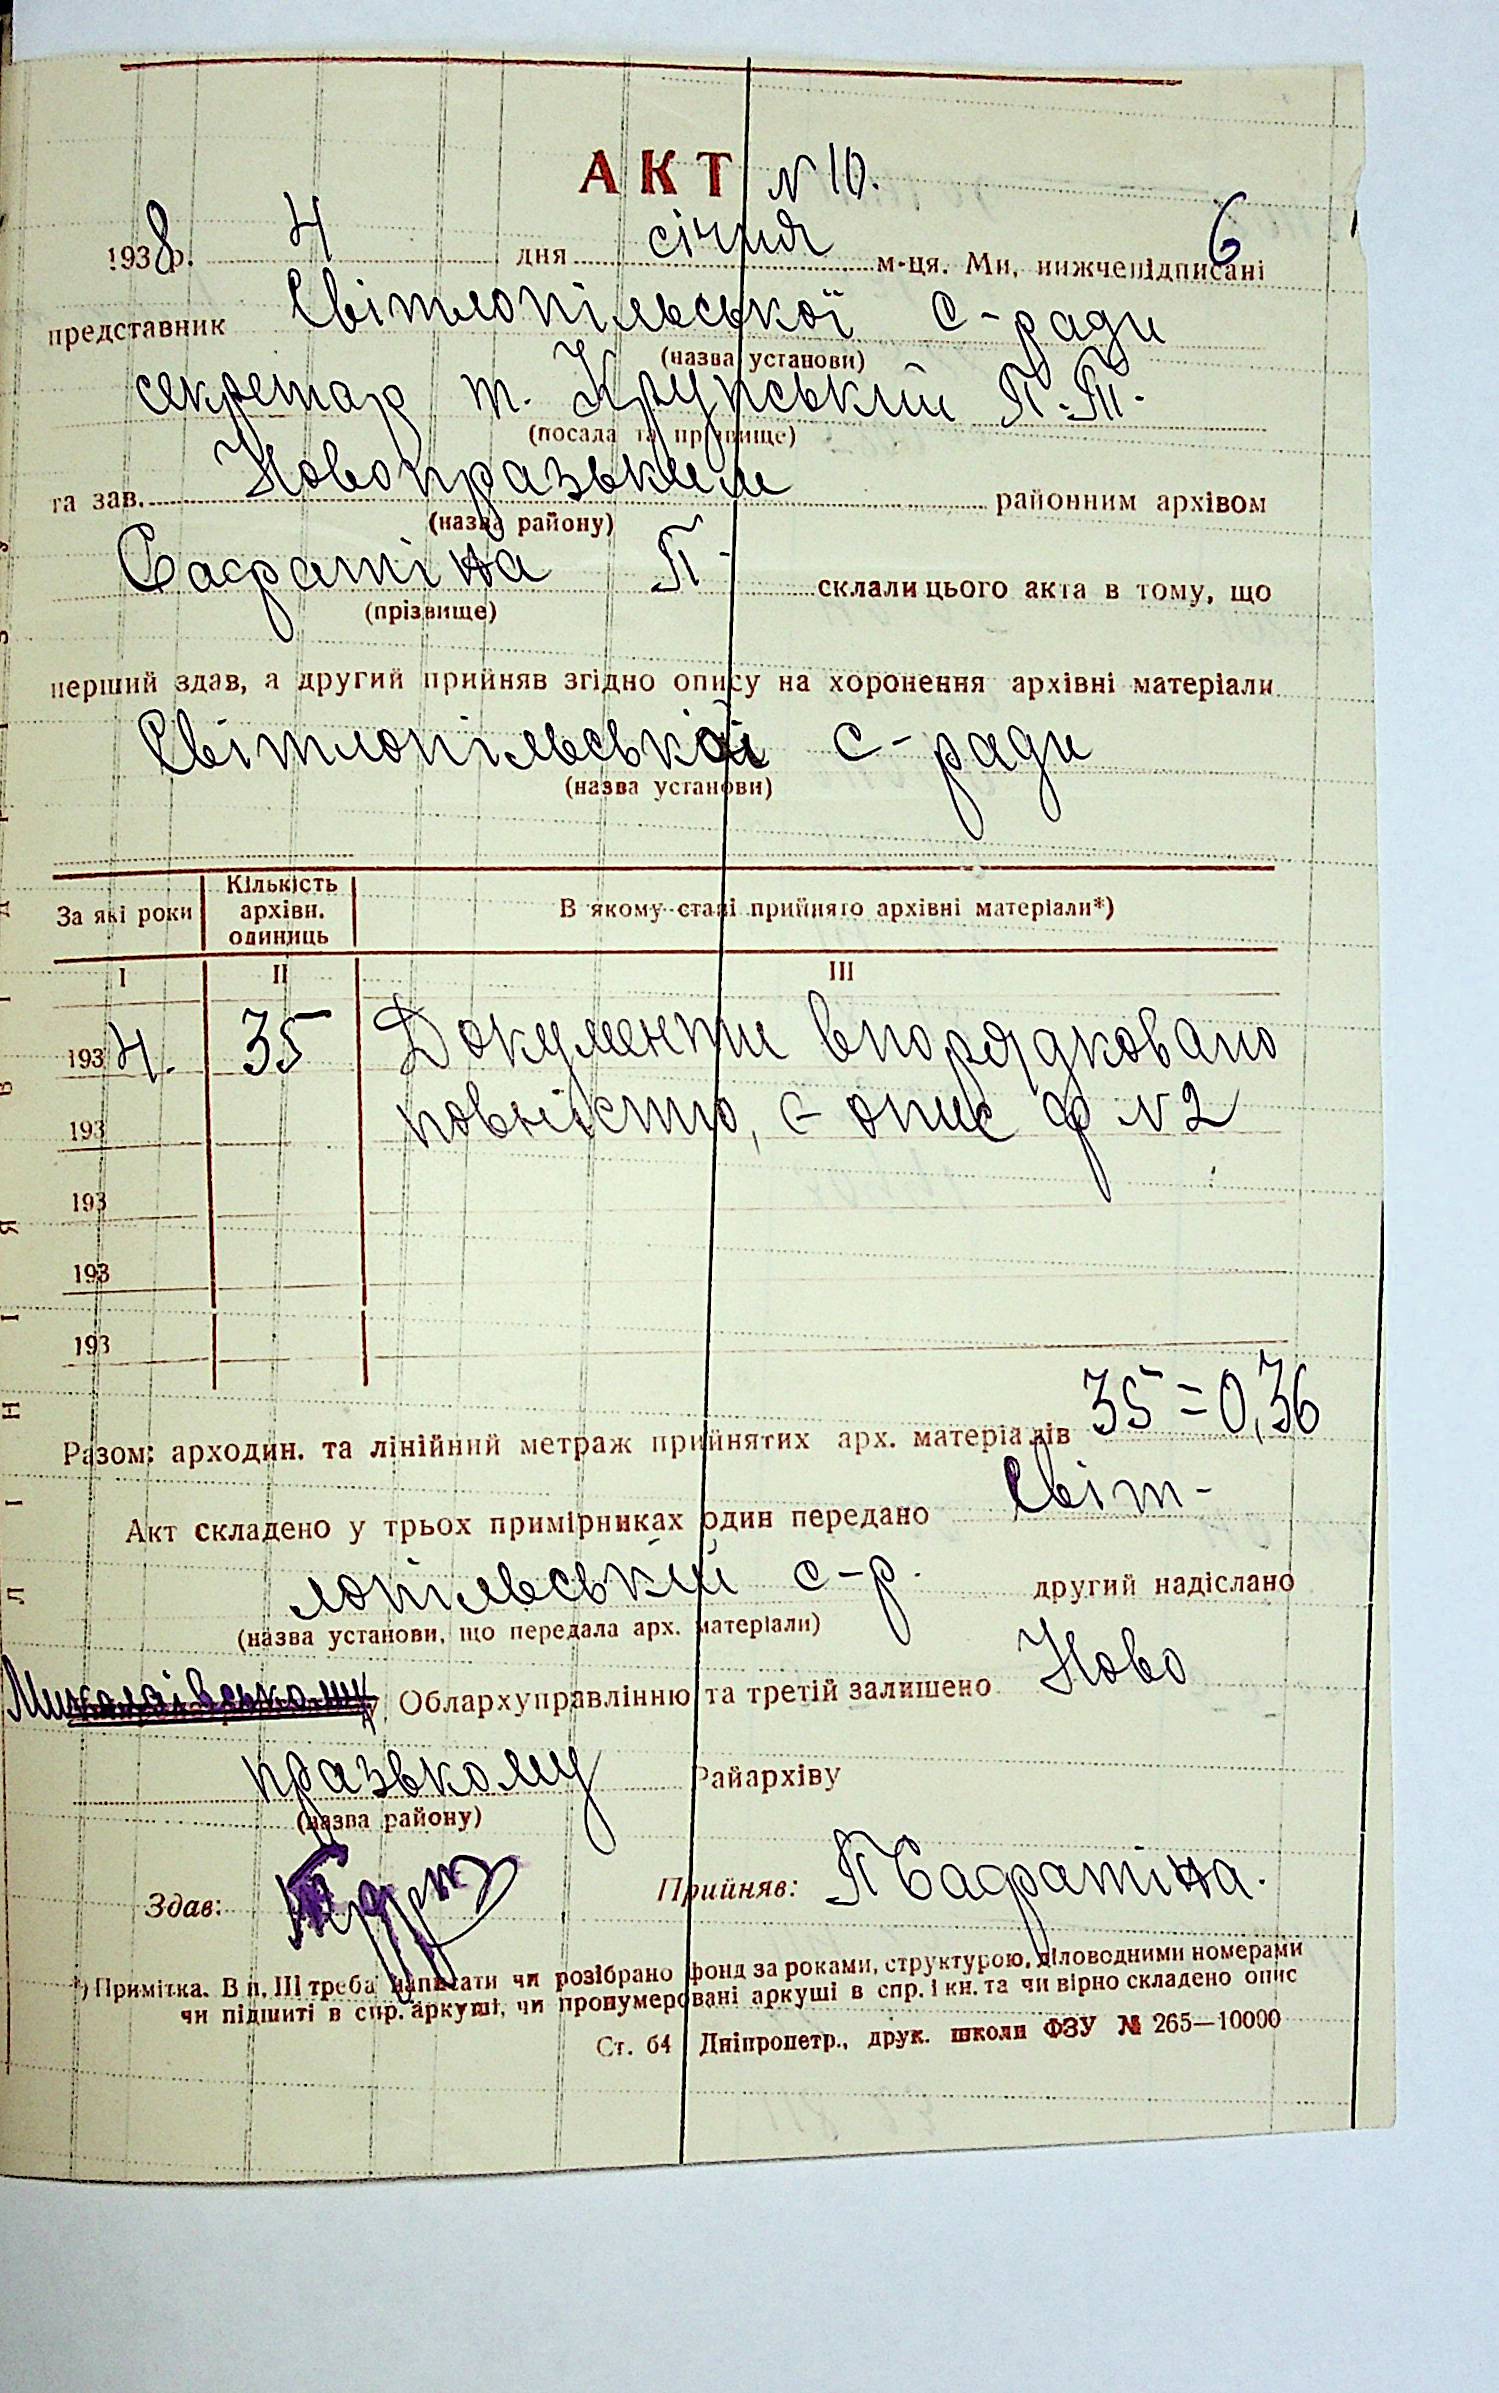 АКТ N 10.
6
1938 р. 4 дня січня м-ця. Ми, нижчепідписані
представник Світлопільської с-ради
(назва установи)
секретар т. Крупський П.Т.
(посада та прізвище)
та зав. Новопразьким районним архівом
(назва району)
Сафатіна П. склали цього акта в тому, що
(прізвище)
перший здав, а другий прийняв згідно опису на хоронення архівні матеріали
Світлопільської с-ради
(назва установи)
За які роки Кількість архівн. одиниць В якому стані прийнято архівні матеріали*)
I II III
1934. 35 Документи впорядковано
193 повністю, є опис ф N 2
193
193
193
Разом: арходин. та лінійний метраж прийнятих арх. матеріалів 35 = 0,36
Акт складено у трьох примірниках один передано Світ-
лопільській с-р. другий надіслано
(назва установи, що передала арх. матеріали)
Миколаївському Обларх­управлінню та третій залишено Ново
празькому Райархіву
(назва району)
Здав: Прийняв: П Сафатіна.
*) Примітка. В п. III треба написати чи розібрано фонд за роками, структурою, діловодними номерами
чи підшиті в спр. аркуші, чи пронумеровані аркуші в спр. і кн. та чи вірно складено опис
Ст. 64 Дніпропетр., друк. школи ФЗУ № 265—10000